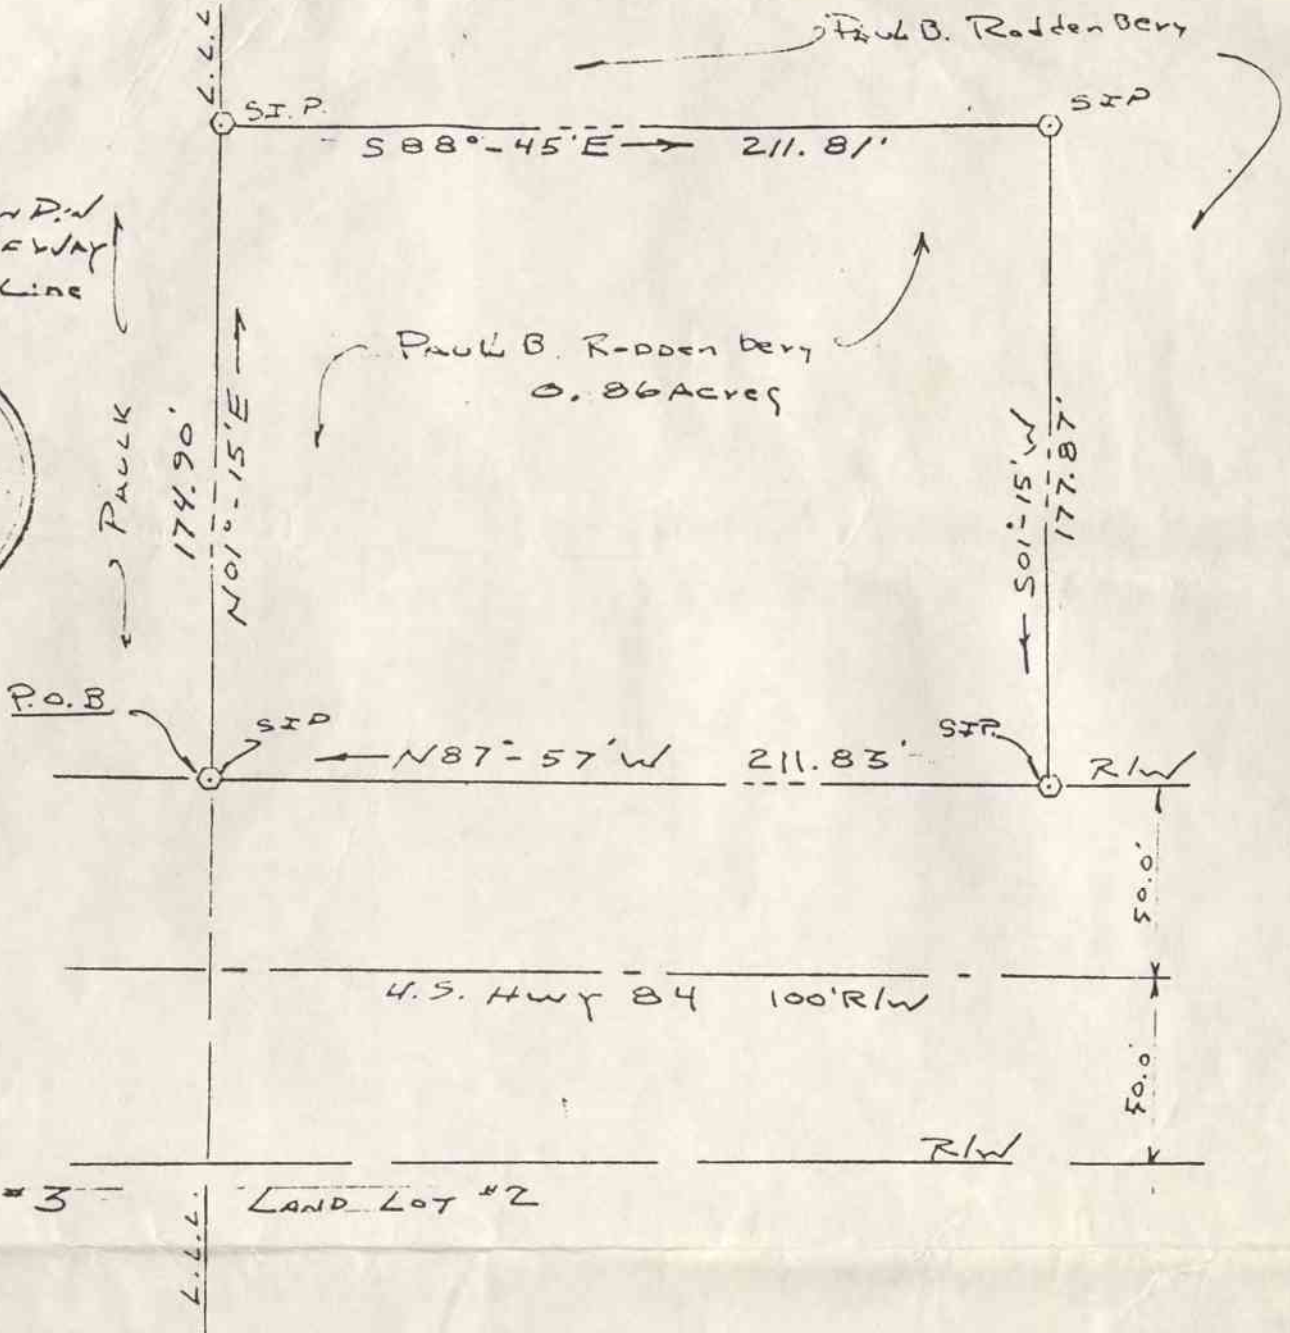 L.L.L
Paul B. Roddenbery
S.I.P.
SIP
S88°-45'E → 211.81'
EWAY
Line
Paul B. Roddenbery
0.86 Acres
PAULK
174.90'
N01°-15'E →
← S01°-15'W
177.87'
P.O.B
SIP
SIP.
← N87°-57'W 211.83'
R/W
50.0'
U.S. Hwy 84 100' R/W
50.0'
R/W
#3
LAND LOT #2
L.L.L.